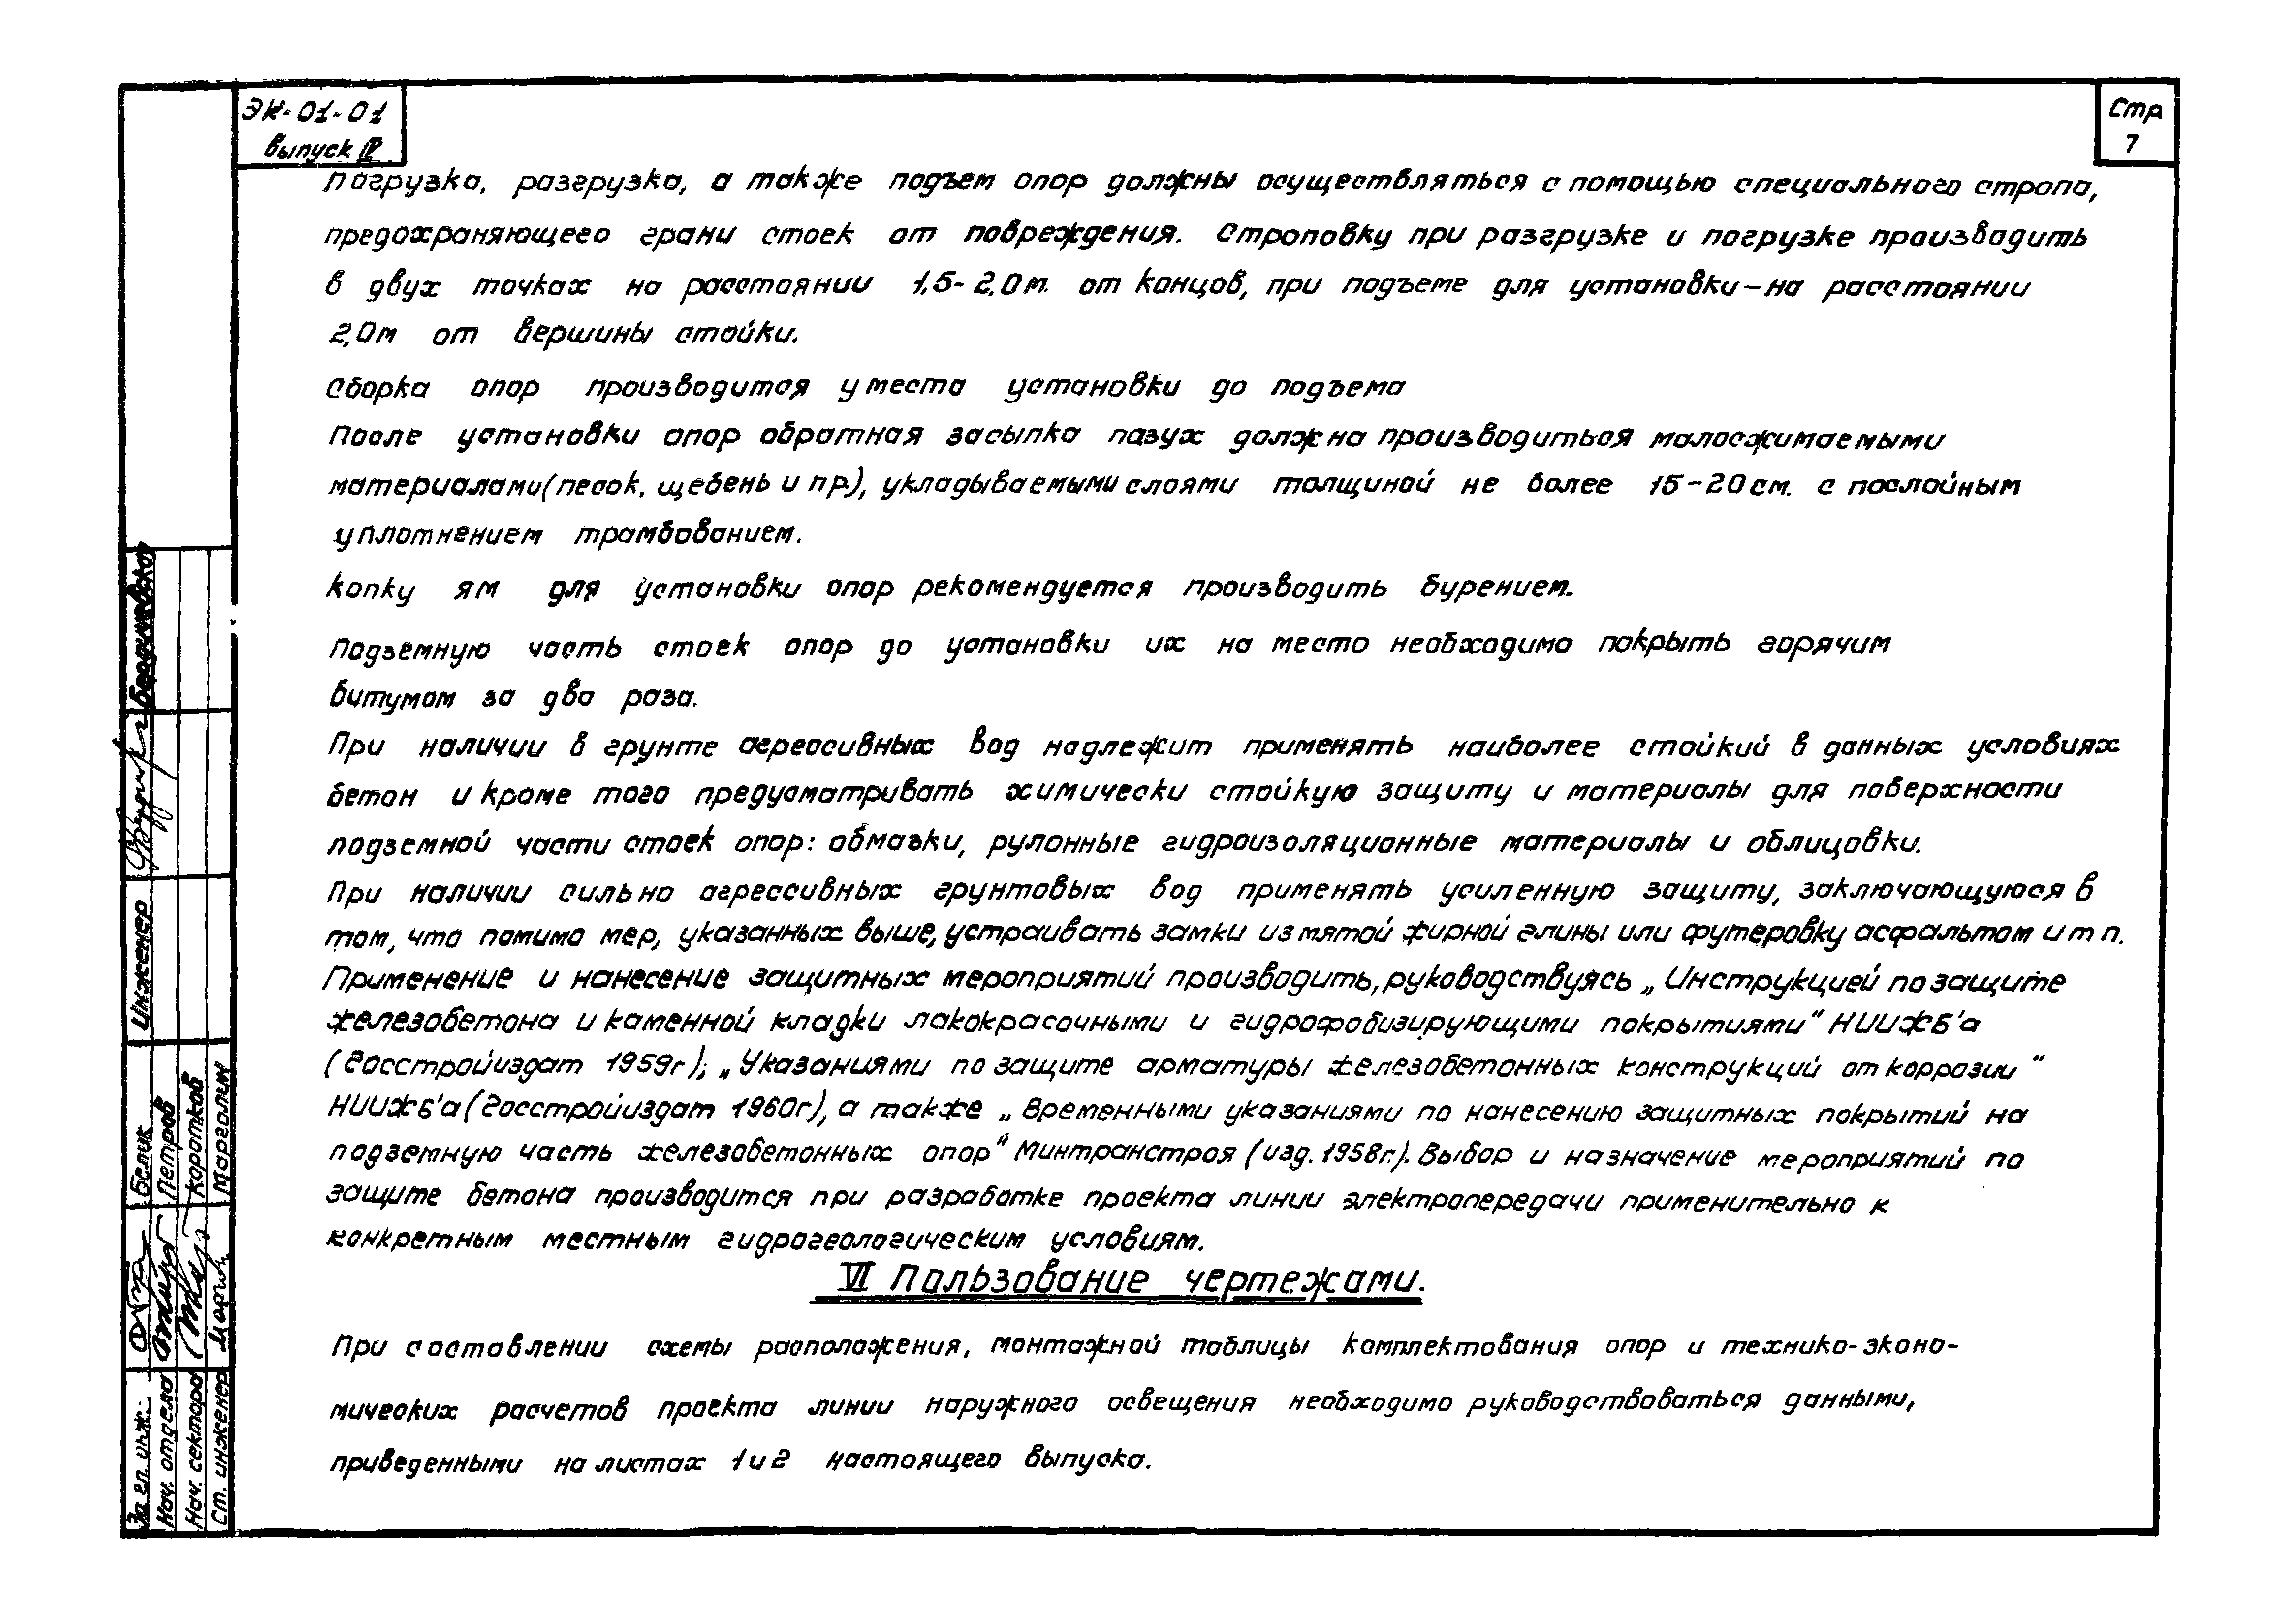 ЭК-01-01
выпуск IV
Стр
7
Погрузка, разгрузка, а также подъем опор должны осуществляться с помощью специального стропа,
предохраняющего грани стоек от повреждения. Строповку при разгрузке и погрузке производить
в двух точках на расстоянии 1,5-2,0м. от концов, при подъеме для установки-на расстоянии
2,0м от вершины стойки.
Сборка опор производится у места установки до подъема
После установки опор обратная засыпка пазух должна производиться малосжимаемыми
материалами(песок, щебень и пр.), укладываемыми слоями толщиной не более 15-20см. с послойным
уплотнением трамбованием.
Копку ям для установки опор рекомендуется производить бурением.
Подземную часть стоек опор до установки их на место необходимо покрыть горячим
битумом за два раза.
При наличии в грунте агрессивных вод надлежит применять наиболее стойкий в данных условиях
бетон и кроме того предусматривать химически стойкую защиту и материалы для поверхности
подземной части стоек опор: обмазки, рулонные гидроизоляционные материалы и облицовки.
При наличии сильно агрессивных грунтовых вод применять усиленную защиту, заключающуюся в
том, что помимо мер, указанных выше, устраивать замки из мятой жирной глины или футеровку асфальтом и т п.
Применение и нанесение защитных мероприятий производить, руководствуясь „Инструкцией по защите
железобетона и каменной кладки лакокрасочными и гидрофобизирующими покрытиями" НИИЖБ'а
(Госстройиздат 1959г); „Указаниями по защите арматуры железобетонных конструкций от коррозии"
НИИЖБ'а (Госстройиздат 1960г), а также „Временными указаниями по нанесению защитных покрытий на
подземную часть железобетонных опор" Минтрансстроя (изд. 1958г.). Выбор и назначение мероприятий по
защите бетона производится при разработке проекта линии электропередачи применительно к
конкретным местным гидрогеологическим условиям.
VI Пользование чертежами.
При составлении схемы расположения, монтажной таблицы комплектования опор и технико-эконо-
мических расчетов проекта линии наружного освещения необходимо руководствоваться данными,
приведенными на листах 1 и 2 настоящего выпуска.
За гл. инж. Белик Инженер
Нач. отдела Петров
Нач. сектора Коротков
Ст. инженер Марголин